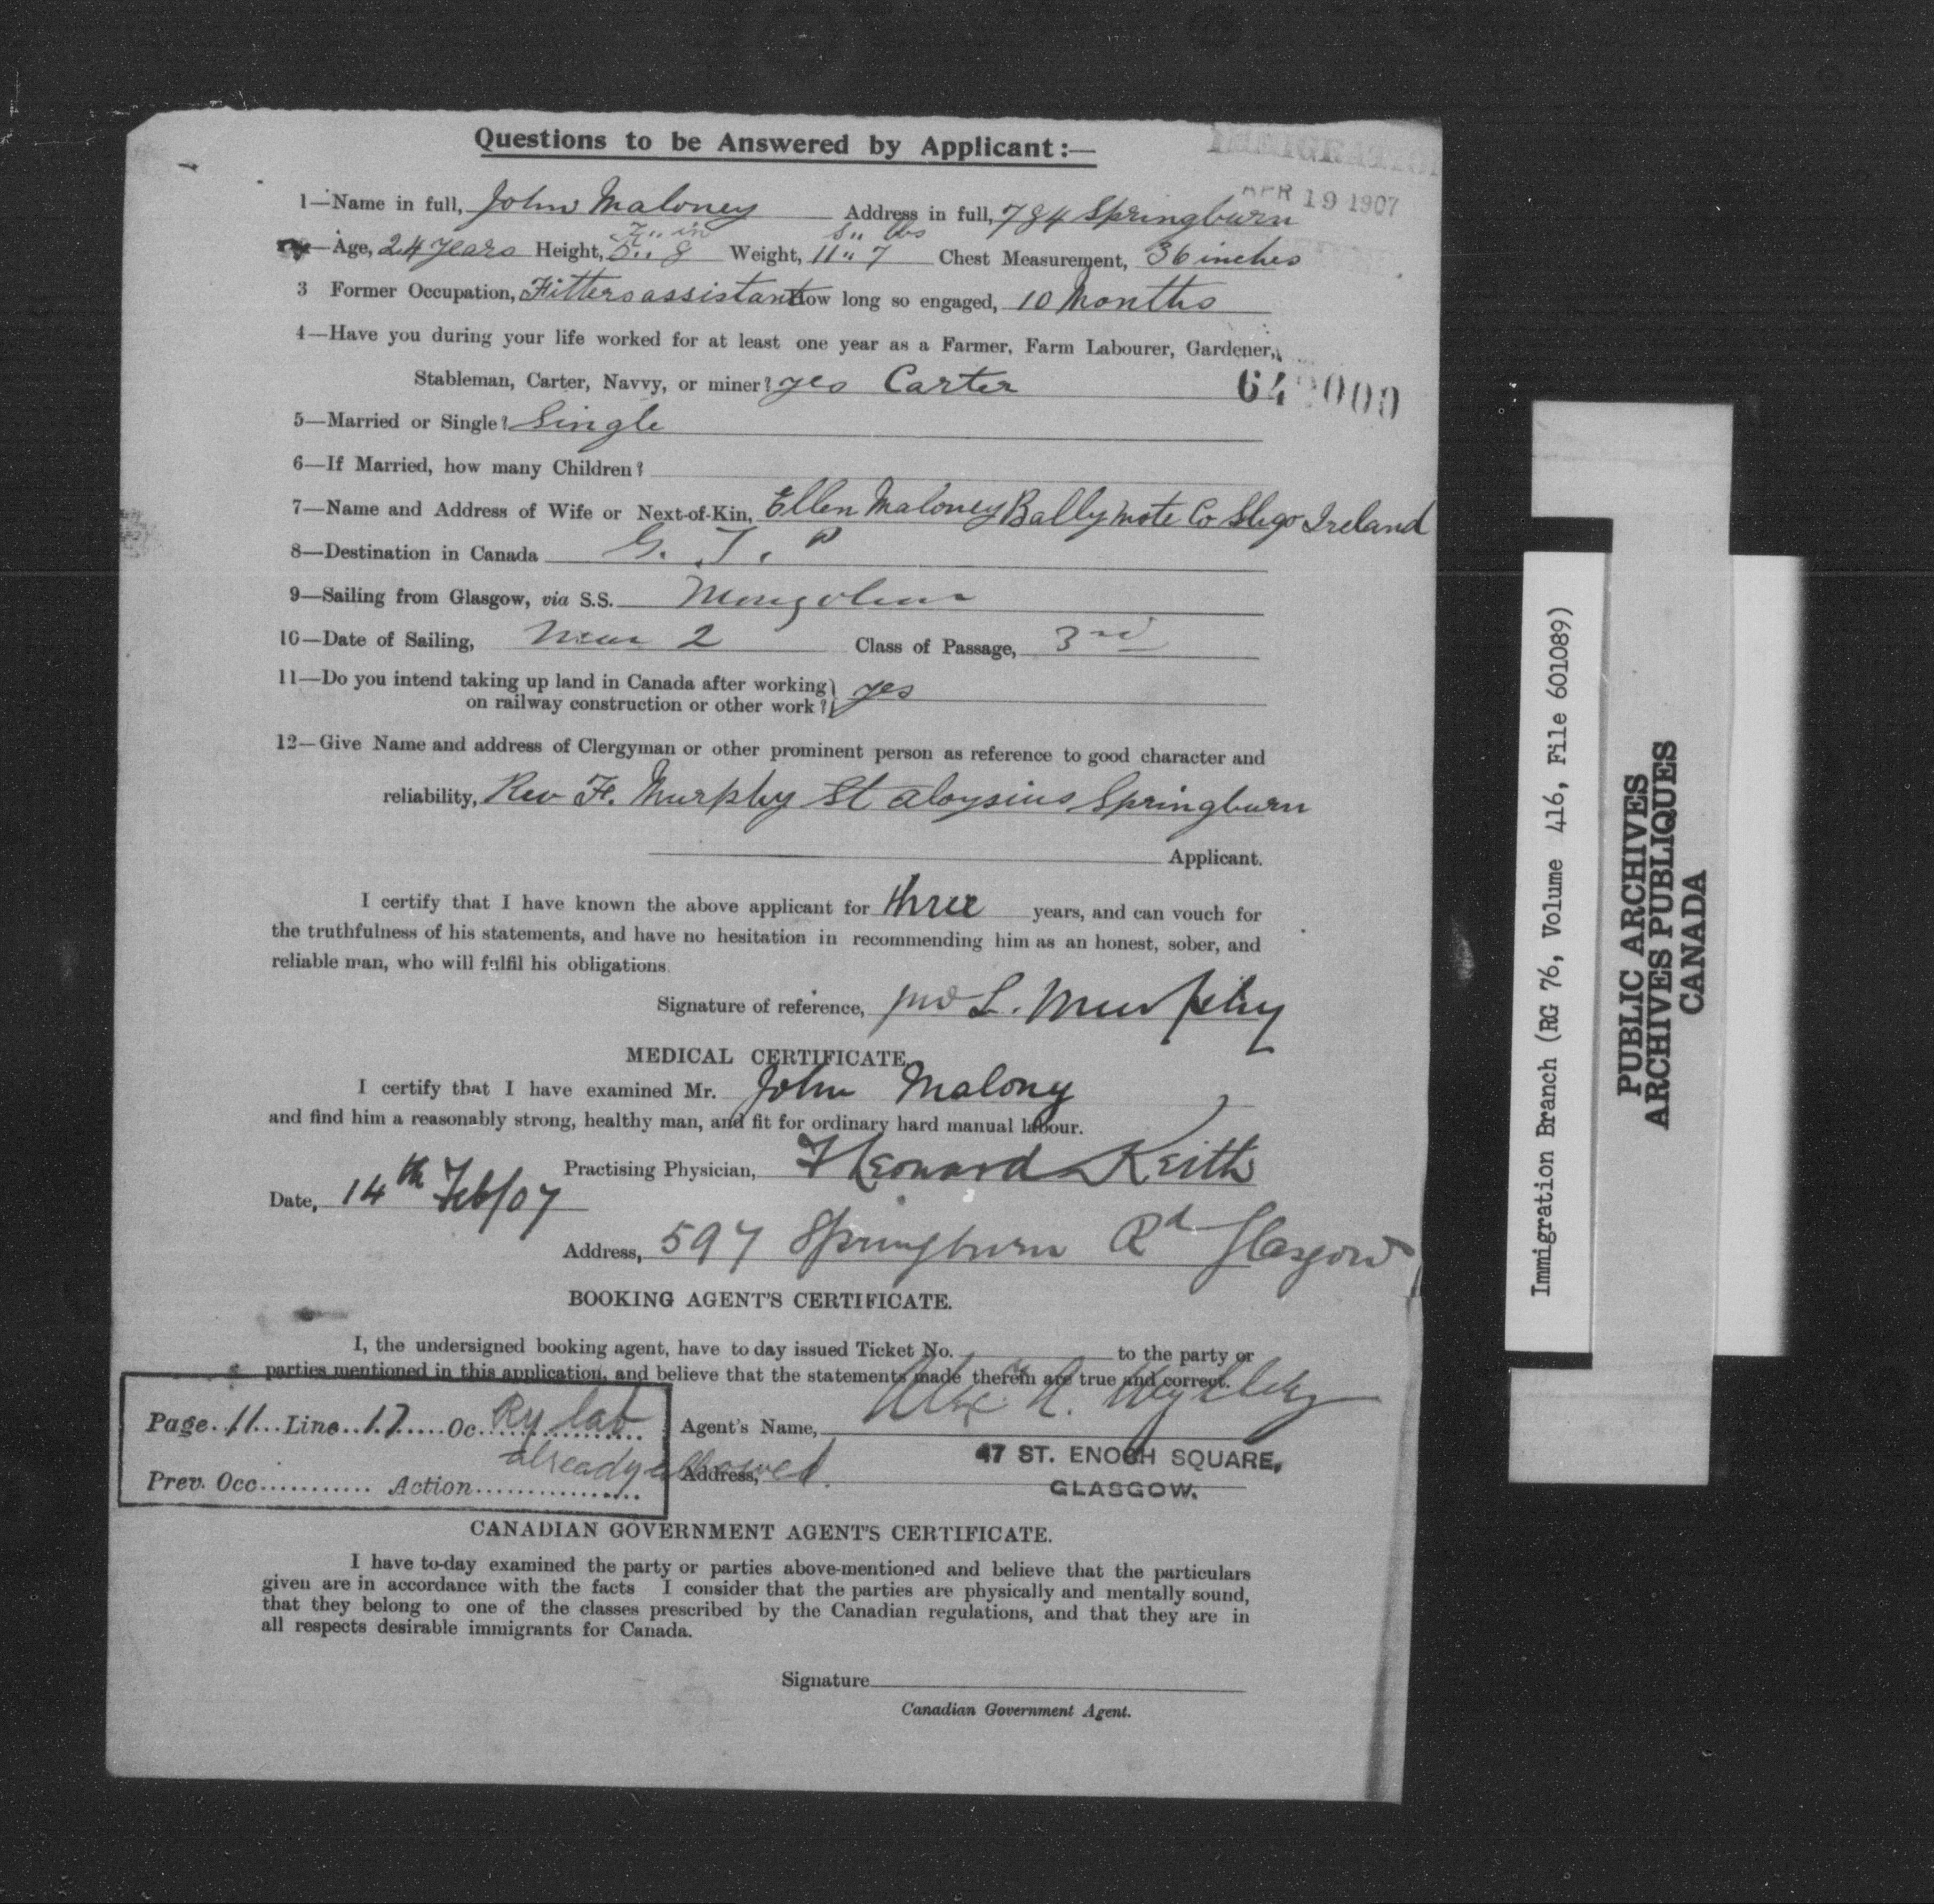 Questions to be Answered by Applicant:—
IMMIGRATION
APR 19 1907
1—Name in full, John Maloney Address in full, 784 Springburn
Ft.. in S.. lbs
—Age, 24 years Height, 5.. 8 Weight, 11.. 7 Chest Measurement, 36 inches
3 Former Occupation, Fitters assistant How long so engaged, 10 Months
4—Have you during your life worked for at least one year as a Farmer, Farm Labourer, Gardener,
Stableman, Carter, Navvy, or miner? yes Carter
64 000
5—Married or Single? Single
6—If Married, how many Children?
7—Name and Address of Wife or Next-of-Kin, Ellen Maloney Ballymote Co Sligo Ireland
8—Destination in Canada G. T. P
9—Sailing from Glasgow, via S.S. Mongolian
10—Date of Sailing, Mar 2 Class of Passage, 3rd
11—Do you intend taking up land in Canada after working
on railway construction or other work? yes
12—Give Name and address of Clergyman or other prominent person as reference to good character and
reliability, Rev F. Murphy St Aloysius Springburn
Applicant.
I certify that I have known the above applicant for three years, and can vouch for
the truthfulness of his statements, and have no hesitation in recommending him as an honest, sober, and
reliable man, who will fulfil his obligations.
Signature of reference, L. Murphy
MEDICAL CERTIFICATE
I certify that I have examined Mr. John Malony
and find him a reasonably strong, healthy man, and fit for ordinary hard manual labour.
Practising Physician, Keith
Date, 14th Feb/07
Address, 597 Springburn Rd Glasgow
BOOKING AGENT'S CERTIFICATE.
I, the undersigned booking agent, have to day issued Ticket No. to the party or
parties mentioned in this application, and believe that the statements made therein are true and correct.
Page. 11... Line.. 17..... Oc. Ry lab
Agent's Name,
already allowed.
Prev. Occ........... Action................
Address, 47 ST. ENOCH SQUARE,
GLASGOW.
CANADIAN GOVERNMENT AGENT'S CERTIFICATE.
I have to-day examined the party or parties above-mentioned and believe that the particulars
given are in accordance with the facts I consider that the parties are physically and mentally sound,
that they belong to one of the classes prescribed by the Canadian regulations, and that they are in
all respects desirable immigrants for Canada.
Signature
Canadian Government Agent.
Immigration Branch (RG 76, Volume 416, File 601089)
PUBLIC ARCHIVES
ARCHIVES PUBLIQUES
CANADA